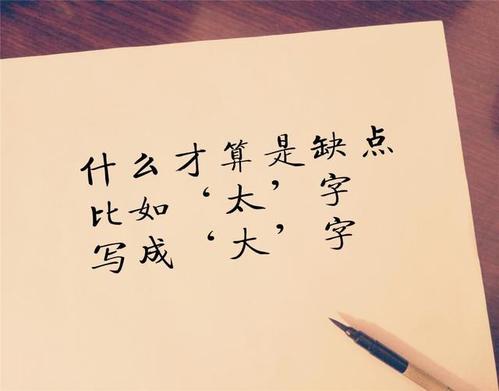 什么才算是缺点
比如‘太’字
写成‘大’字